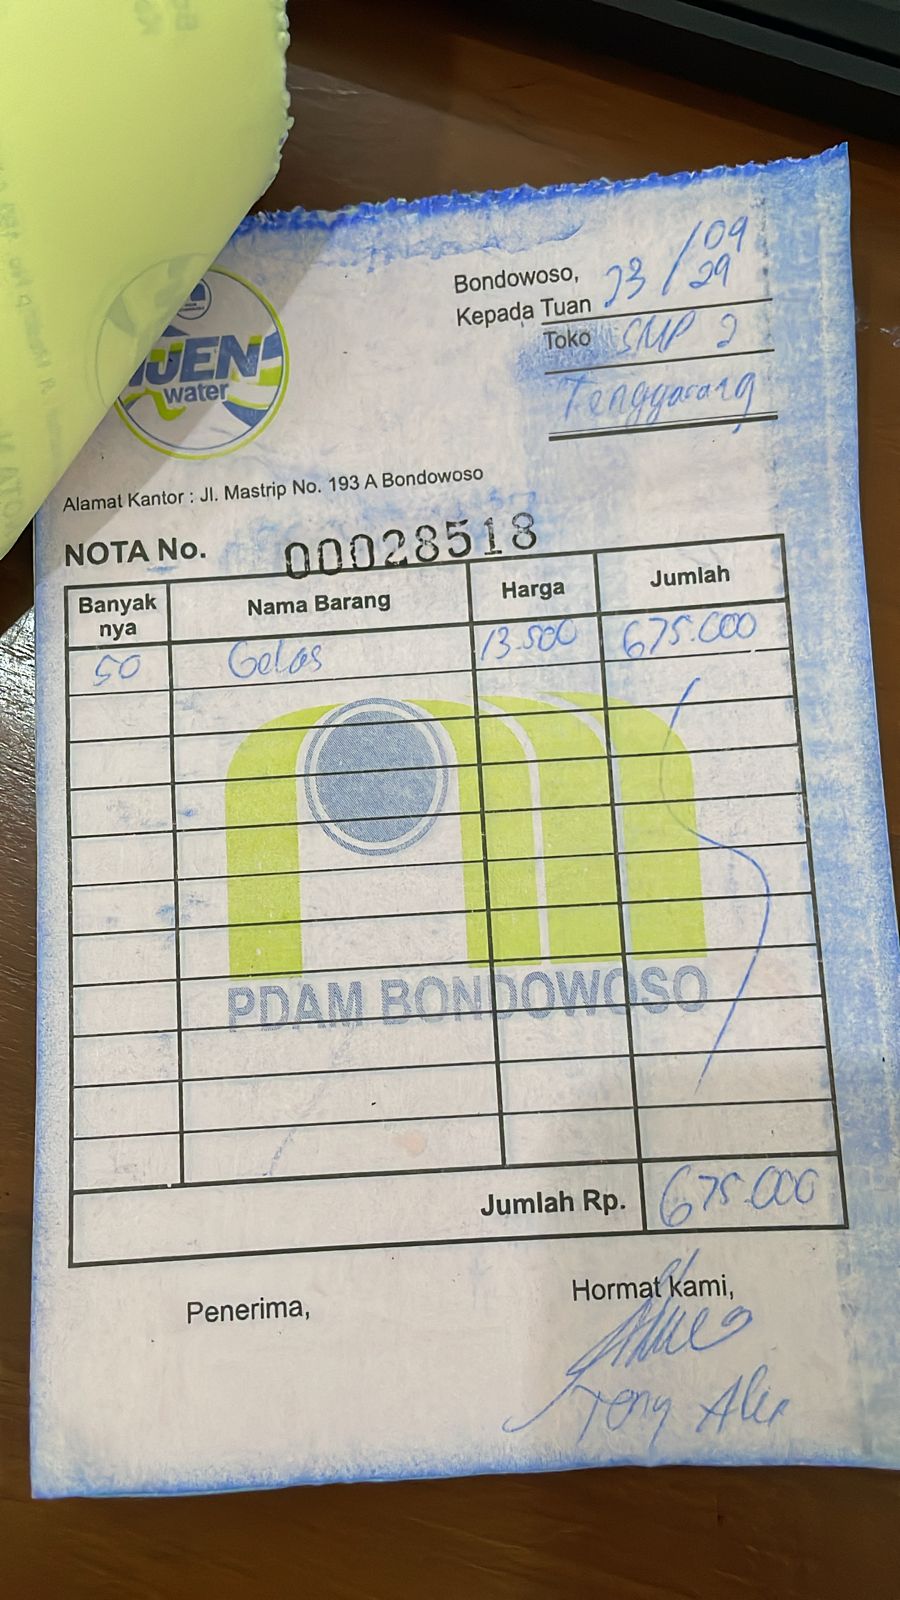 IJEN
water
Bondowoso, 23/09
29
Kepada Tuan
Toko SMP 2
Tenggarang
Alamat Kantor : Jl. Mastrip No. 193 A Bondowoso
NOTA No. 00028518
Banyak nya Nama Barang Harga Jumlah
50 Gelas 13.500 675.000
PDAM BONDOWOSO
Jumlah Rp. 675.000
Penerima, Hormat kami,
Tony